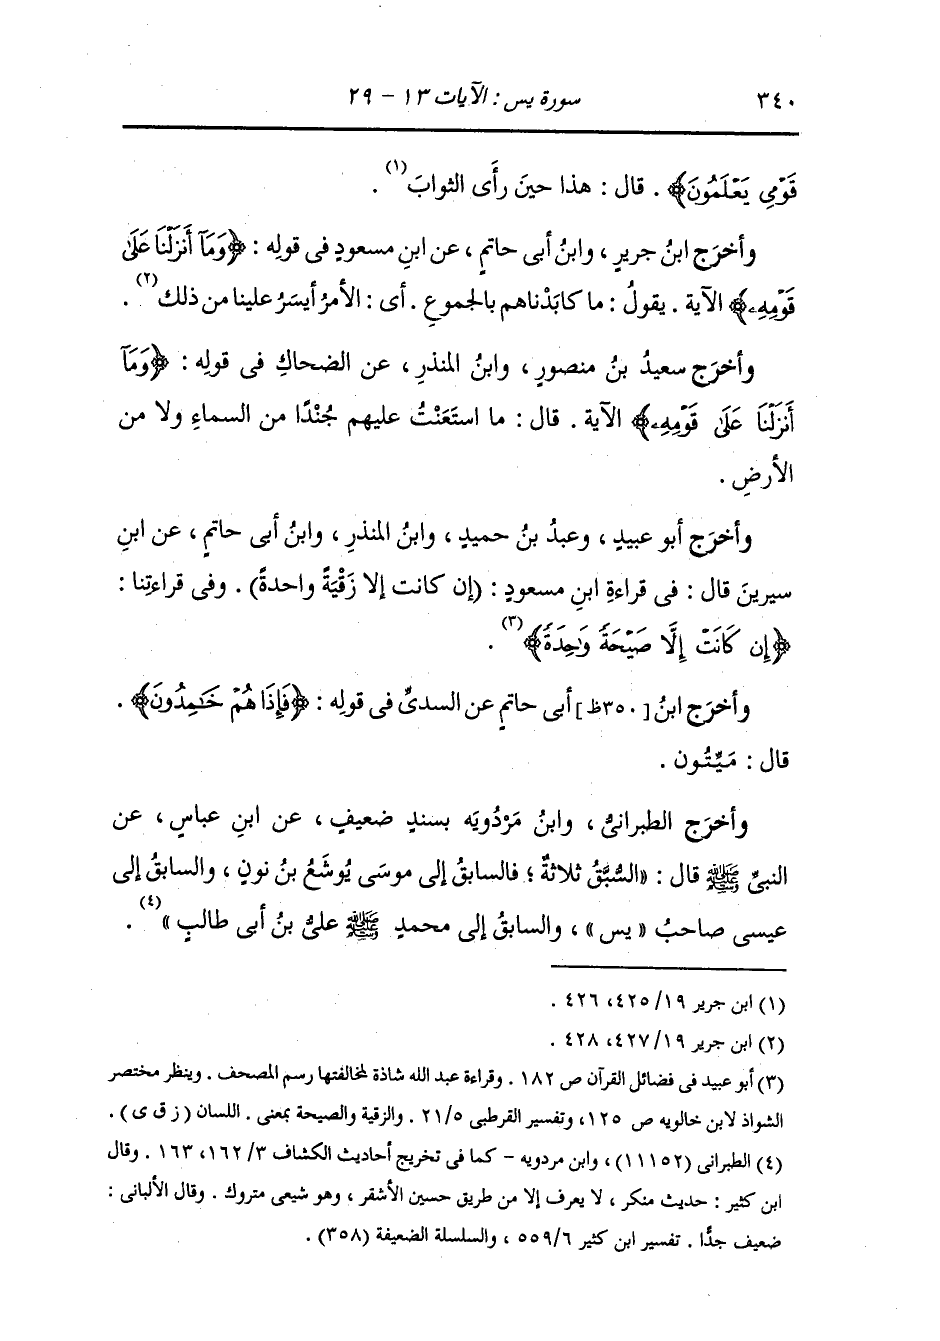 ٣٤٠ سورة يس : الآيات ١٣ - ٢٩
قَوْمِي يَعْلَمُونَ﴾ . قال : هذا حينَ رأَى الثوابَ(١) .
وأخرَج ابنُ جريرٍ ، وابنُ أبى حاتمٍ ، عن ابنِ مسعودٍ فى قولِه : ﴿وَمَآ أَنزَلْنَا عَلَىٰ
قَوْمِهِۦ﴾ الآية . يقولُ : ما كابَدْناهم بالجموعِ . أى : الأمرُ أيسَرُ علينا من ذلك(٢) .
وأخرَج سعيدُ بنُ منصورٍ ، وابنُ المنذرِ ، عن الضحاكِ فى قولِه : ﴿وَمَآ
أَنزَلْنَا عَلَىٰ قَوْمِهِۦ﴾ الآية . قال : ما استَعَنْتُ عليهم جُنْدًا من السماءِ ولا من
الأرضِ .
وأخرَج أبو عبيدٍ ، وعبدُ بنُ حميدٍ ، وابنُ المنذرِ ، وابنُ أبى حاتمٍ ، عن ابنِ
سيرينَ قال : فى قراءةِ ابنِ مسعودٍ : (إن كانت إلا زَقْيَةً واحدةً) . وفى قراءتِنا :
﴿إِن كَانَتْ إِلَّا صَيْحَةً وَٰحِدَةً﴾(٣) .
وأخرَج ابنُ [٣٥٠ظ] أبى حاتمٍ عن السدىِّ فى قولِه : ﴿فَإِذَا هُمْ خَٰمِدُونَ﴾ .
قال : مَيِّتُون .
وأخرَج الطبرانىُّ ، وابنُ مَرْدُويَه بسندٍ ضعيفٍ ، عن ابنِ عباسٍ ، عن
النبىِّ ﷺ قال : «السُّبَّقُ ثلاثةٌ ؛ فالسابقُ إلى موسَى يُوشَعُ بنُ نونٍ ، والسابقُ إلى
عيسى صاحبُ « يس » ، والسابقُ إلى محمدٍ ﷺ علىُّ بنُ أبى طالبٍ »(٤) .
(١) ابن جرير ١٩/ ٤٢٥، ٤٢٦ .
(٢) ابن جرير ١٩/ ٤٢٧، ٤٢٨ .
(٣) أبو عبيد فى فضائل القرآن ص ١٨٢ . وقراءة عبد الله شاذة لمخالفتها رسم المصحف . وينظر مختصر
الشواذ لابن خالويه ص ١٢٥، وتفسير القرطبى ٢١/٥ . والزقية والصيحة بمعنى . اللسان (ز ق ى) .
(٤) الطبرانى (١١١٥٢) ، وابن مردويه – كما فى تخريج أحاديث الكشاف ٣/ ١٦٢، ١٦٣ . وقال
ابن كثير : حديث منكر ، لا يعرف إلا من طريق حسين الأشقر ، وهو شيعى متروك . وقال الألبانى :
ضعيف جدًّا . تفسير ابن كثير ٥٥٩/٦ ، والسلسلة الضعيفة (٣٥٨) .